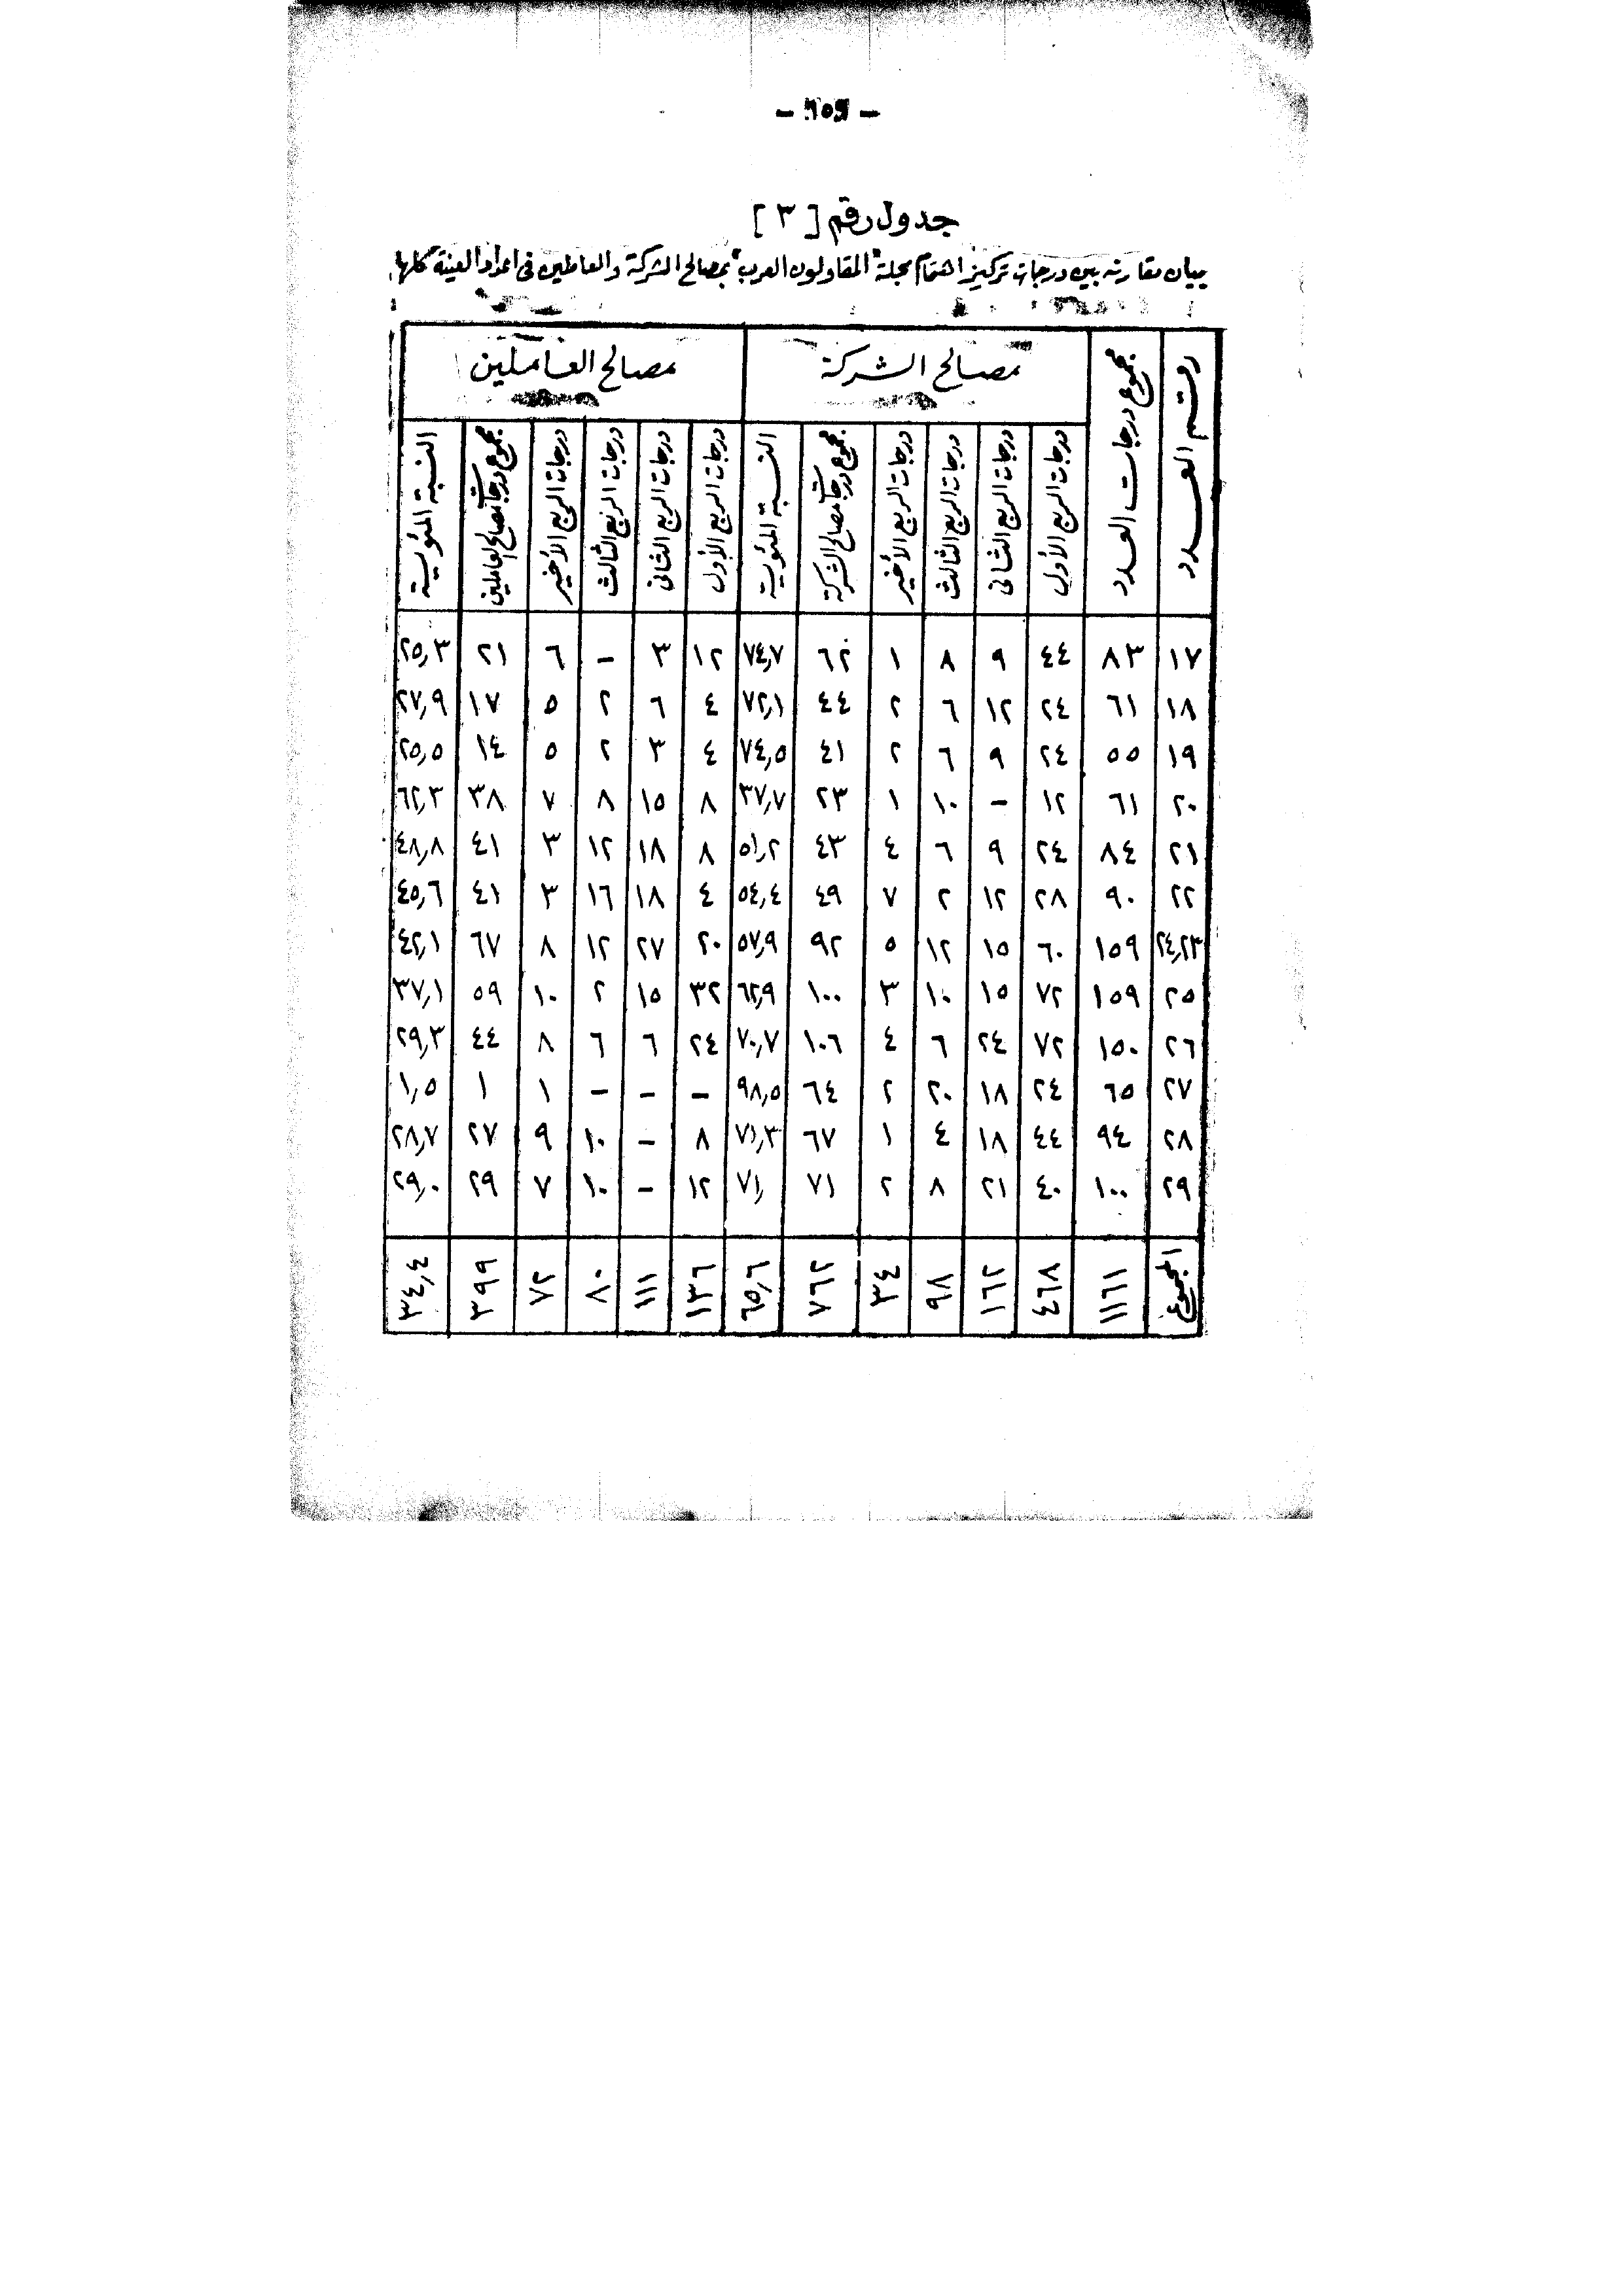 جدول رقم [ ٣ ]
بيان مقارنه بين درجات تركيز اهتمام مجلة "المقاولون العرب" بمصالح الشركة والعاملين فى اعداد العينة كلها
رقم العدد مجموع درجات العدد مصالح الشركة مصالح العاملين
درجات الربع الأول درجات الربع الثانى درجات الربع الثالث درجات الربع الأخير مجموع درجات مصالح الشركة النسبة المئوية درجات الربع الأول درجات الربع الثانى درجات الربع الثالث درجات الربع الأخير مجموع درجات مصالح العاملين النسبة المئوية
١٧ ٨٣ ٤٤ ٩ ٨ ١ ٦٢ ٧٤,٧ ١٢ ٣ – ٦ ٢١ ٢٥,٣
١٨ ٦١ ٢٤ ١٢ ٦ ٢ ٤٤ ٧٢,١ ٤ ٦ ٢ ٥ ١٧ ٢٧,٩
١٩ ٥٥ ٢٤ ٩ ٦ ٢ ٤١ ٧٤,٥ ٤ ٣ ٢ ٥ ١٤ ٢٥,٥
٢٠ ٦١ ١٢ – ١٠ ١ ٢٣ ٣٧,٧ ٨ ١٥ ٨ ٧ ٣٨ ٦٢,٣
٢١ ٨٤ ٢٤ ٩ ٦ ٤ ٤٣ ٥١,٢ ٨ ١٨ ١٢ ٣ ٤١ ٤٨,٨
٢٢ ٩٠ ٢٨ ١٢ ٢ ٧ ٤٩ ٥٤,٤ ٤ ١٨ ١٦ ٣ ٤١ ٤٥,٦
٢٤,٢٣ ١٥٩ ٦٠ ١٥ ١٢ ٥ ٩٢ ٥٧,٩ ٢٠ ٢٧ ١٢ ٨ ٦٧ ٤٢,١
٢٥ ١٥٩ ٧٢ ١٥ ١٠ ٣ ١٠٠ ٦٢,٩ ٣٢ ١٥ ٢ ١٠ ٥٩ ٣٧,١
٢٦ ١٥٠ ٧٢ ٢٤ ٦ ٤ ١٠٦ ٧٠,٧ ٢٤ ٦ ٦ ٨ ٤٤ ٢٩,٣
٢٧ ٦٥ ٢٤ ١٨ ٢٠ ٢ ٦٤ ٩٨,٥ – – – ١ ١ ١,٥
٢٨ ٩٤ ٤٤ ١٨ ٤ ١ ٦٧ ٧١,٣ ٨ – ١٠ ٩ ٢٧ ٢٨,٧
٢٩ ١٠٠ ٤٠ ٢١ ٨ ٢ ٧١ ٧١, ١٢ – ١٠ ٧ ٢٩ ٢٩,٠
المجموع ١١٦١ ٤٦٨ ١٦٢ ٩٨ ٣٤ ٧٦٢ ٦٥,٦ ١٣٦ ١١١ ٨٠ ٧٢ ٣٩٩ ٣٤,٤